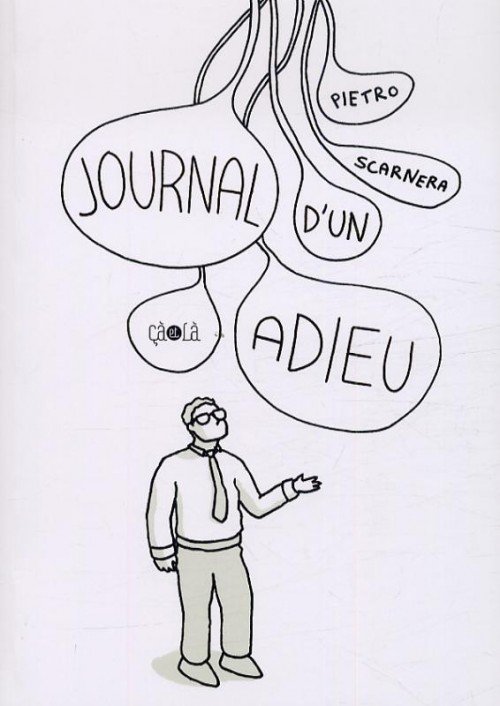 PIETRO
SCARNERA
JOURNAL
D'UN
ADIEU
çà et Là